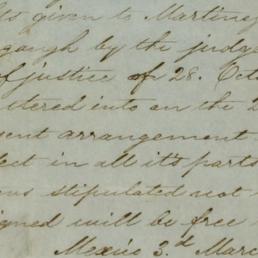 given to Martine
by the judg
of justice of 28. Octo
tered into on the 2
ent arrangement
ect in all it's parts
ous stipulated not
igned will be free
Mexico 3.d Marc